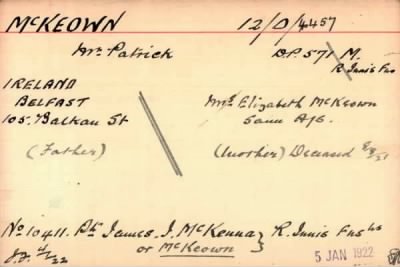 McKEOWN 12/0/4457
Mr. Patrick D.P. 571 M.
R Innis Fus
IRELAND
BELFAST Mrs Elizabeth McKeown
105. Balkan St Same A/6.
(Father) (Mother) Deceased
No 10411. Pte James. J. McKenna } R. Innis Fus
or McKEOWN
5 JAN 1922